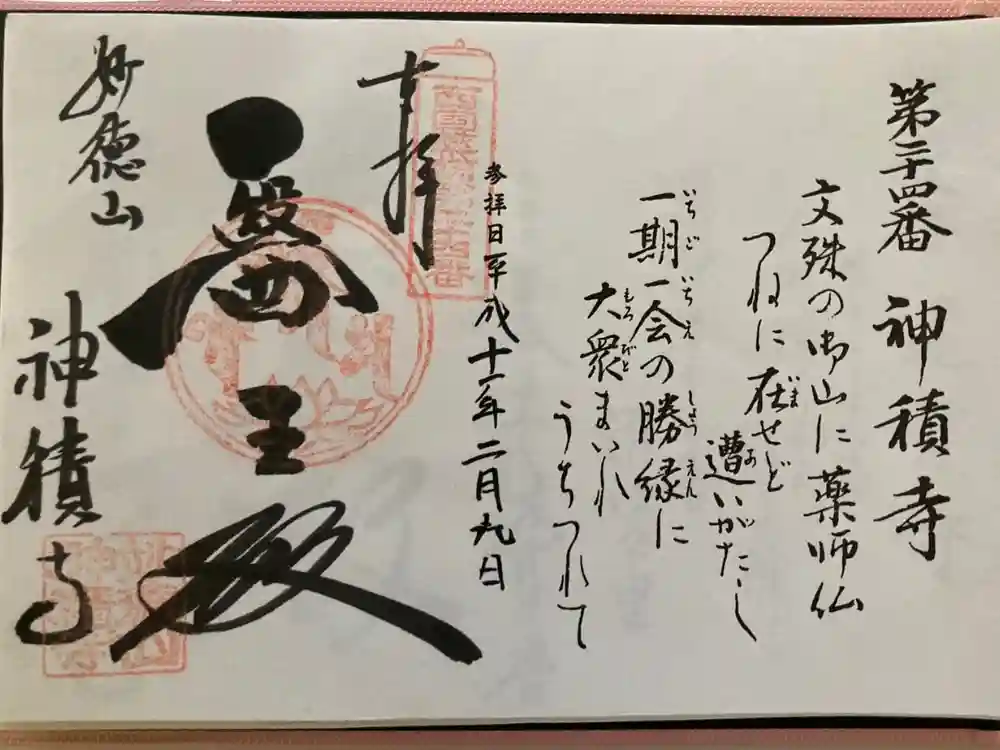 第二十四番 神積寺
文殊の御山に薬師仏
つねに在せど
遭いがたし
一期一会の勝縁に
大衆まいれ
うちつれて
参拝日平成十二年二月九日
奉拝
西国薬師第二十四番
醫王殿
妙徳山
神積寺